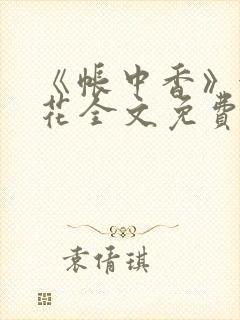 《帐中香》
花全文免費
袁倩琪